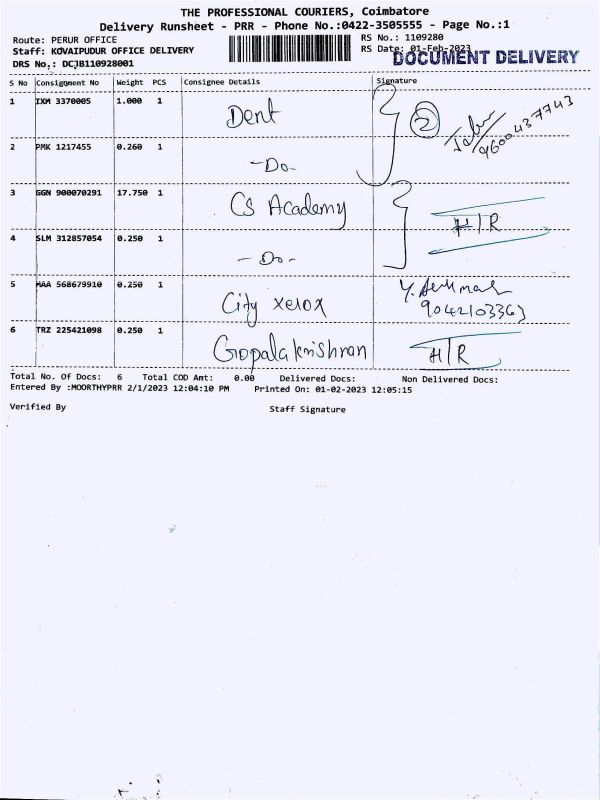 THE PROFESSIONAL COURIERS, Coimbatore
Delivery Runsheet - PRR - Phone No.:0422-3505555 - Page No.:1
Route: PERUR OFFICE
RS No.: 1109280
Staff: KOVAIPUDUR OFFICE DELIVERY
RS Date: 01-Feb-2023
DOCUMENT DELIVERY
DRS No,: DCJB110928001
S No Consignment No Weight PCS Consignee Details Signature
1 IXM 3370005 1.000 1 Dent 2
9600437743
2 PMK 1217455 0.260 1 -Do-
3 GGN 900070291 17.750 1 CS Academy H/R
4 SLM 312857054 0.250 1 -Do-
5 MAA 568679910 0.250 1 City xerox
9042103363
6 TRZ 225421098 0.250 1 Gopalakrishnan H/R
Total No. Of Docs: 6 Total COD Amt: 0.00 Delivered Docs: Non Delivered Docs:
Entered By :MOORTHYPRR 2/1/2023 12:04:10 PM Printed On: 01-02-2023 12:05:15
Verified By Staff Signature